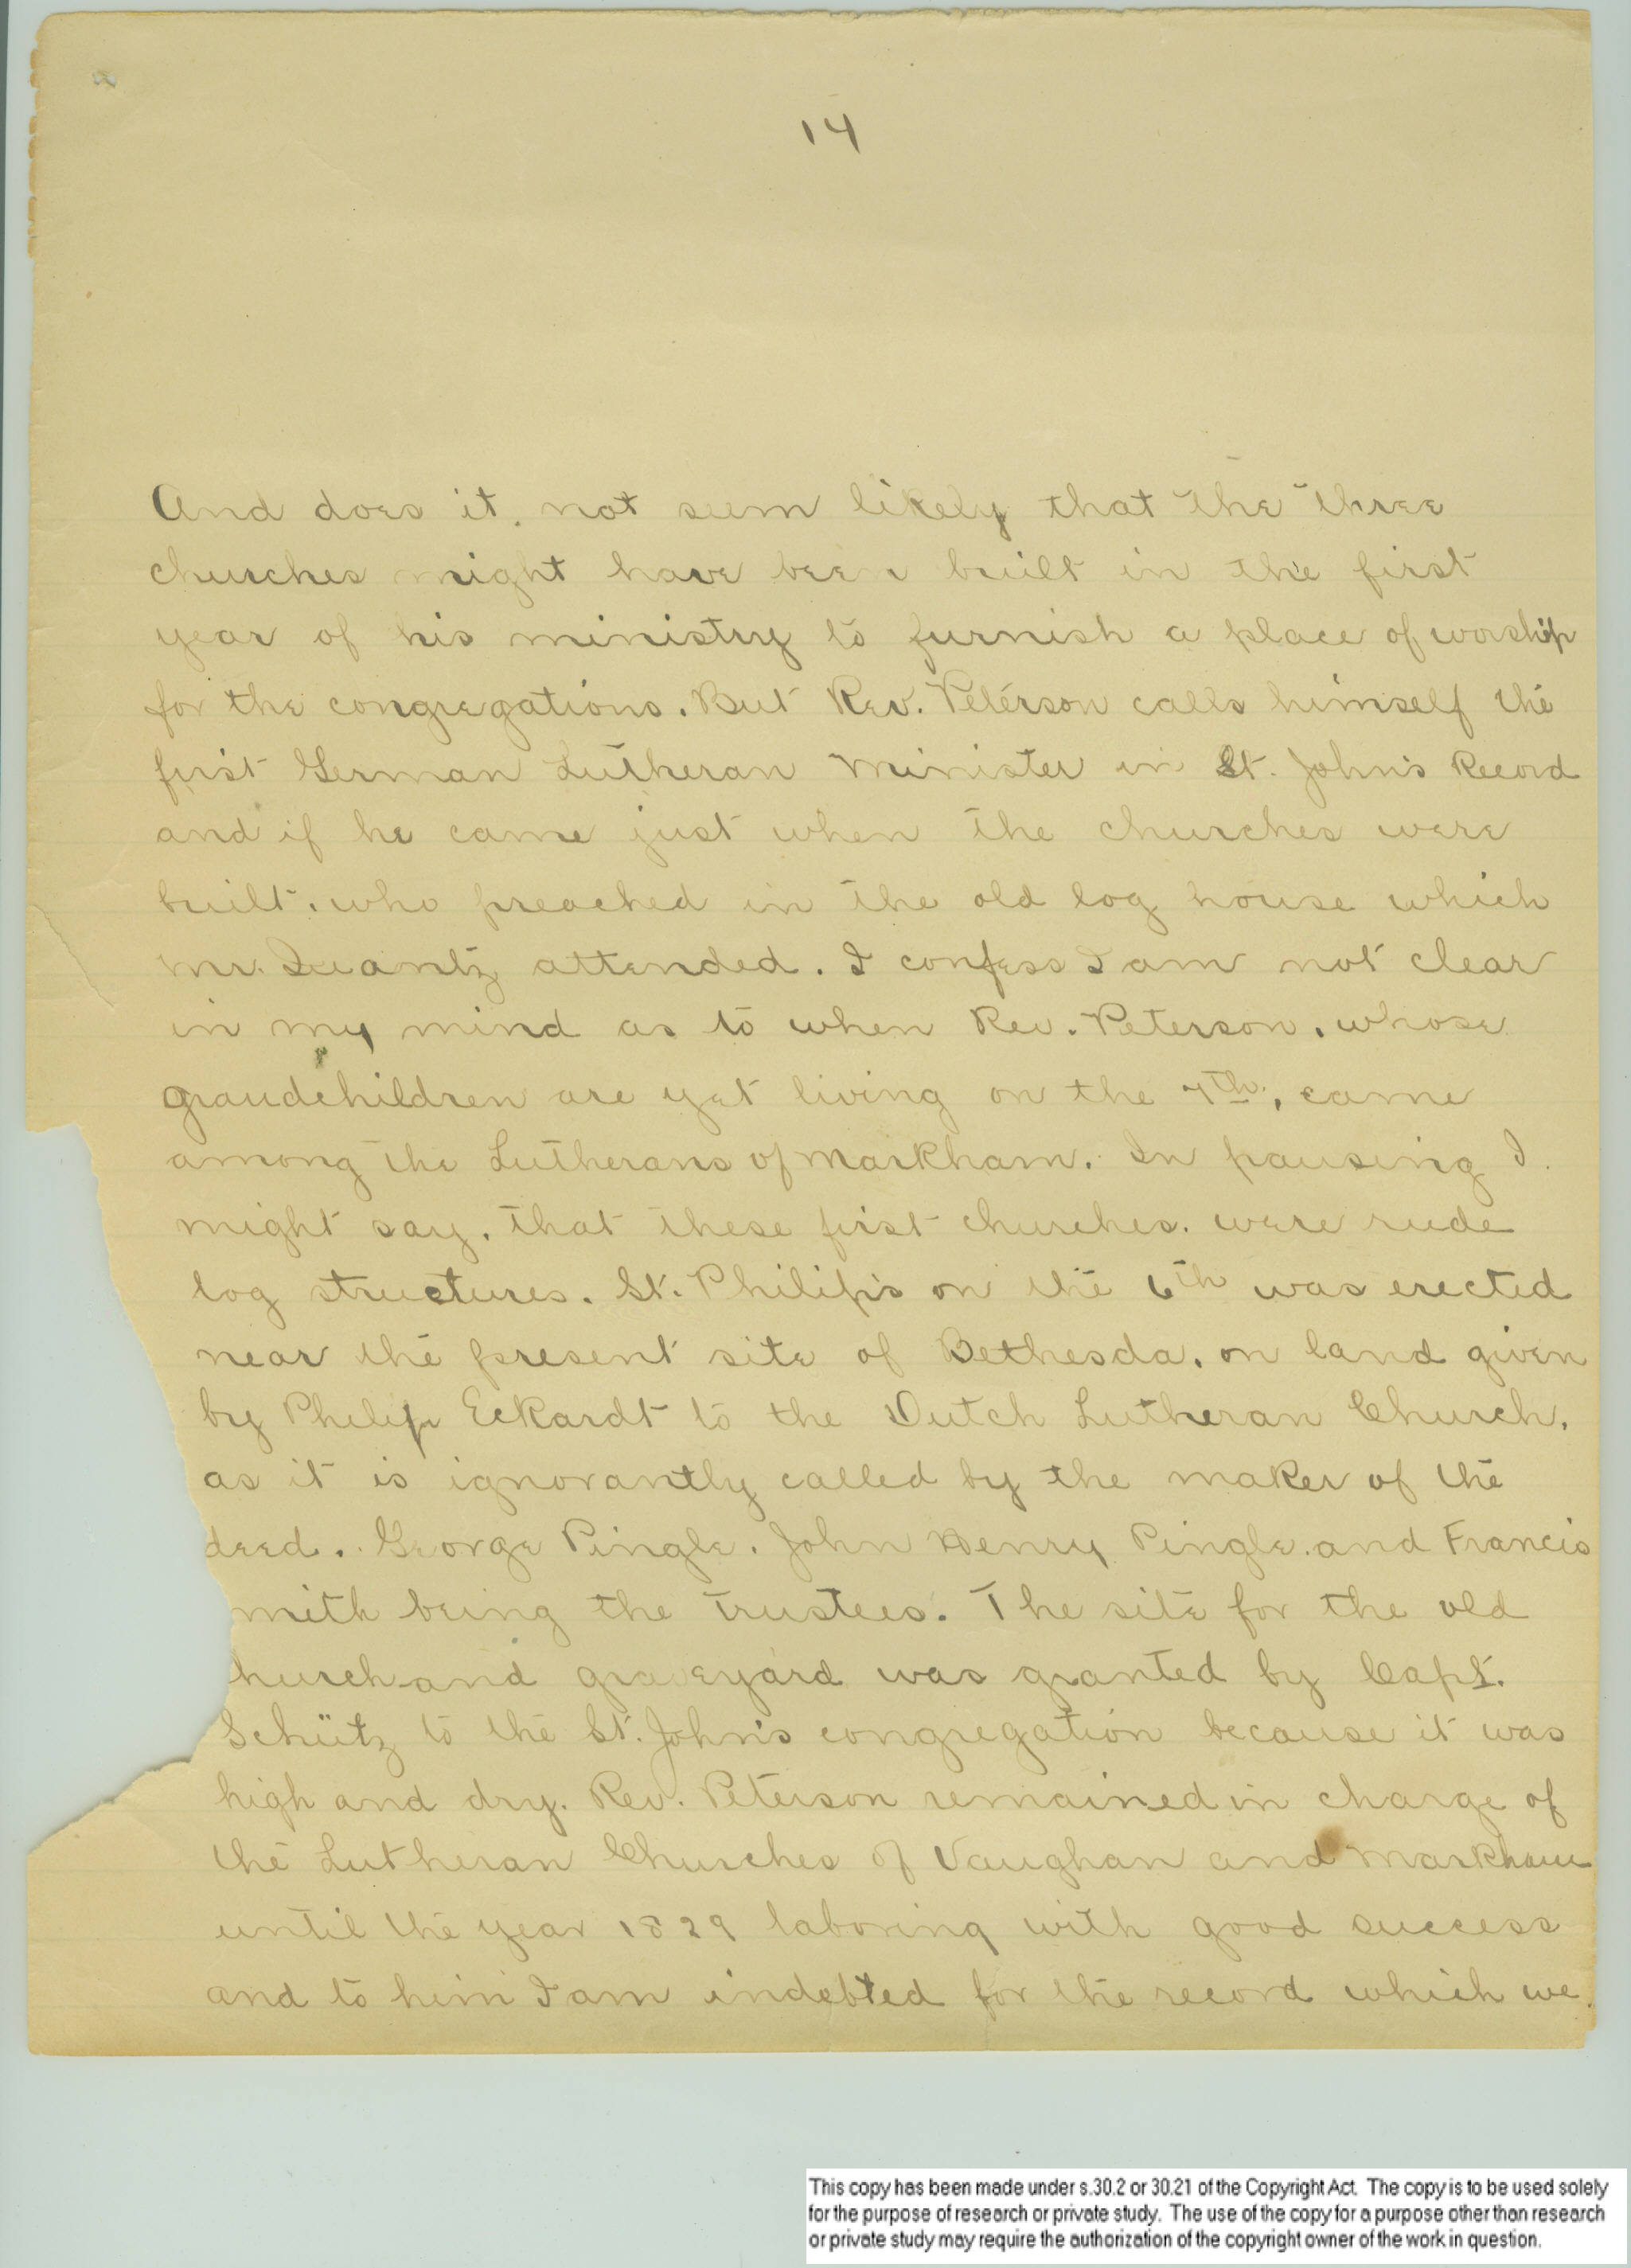 14
And does it. not seem likely that the three
churches might have been built in the first
year of his ministry to furnish a place of worship
for the congregations. But Rev. Peterson calls himself the
first German Lutheran Minister in St. John's Record
and if he came just when the churches were
built. who preached in the old log house which
Mr. Quantz attended. I confess I am not clear
in my mind as to when Rev. Peterson, whose
grandchildren are yet living on the 7th, came
among the Lutherans of Markham. In pausing I
might say, that these first churches. were rude
log structures. St. Philip's on the 6th was erected
near the present site of Bethesda, on land given
by Philip Eckardt to the Dutch Lutheran Church,
as it is ignorantly called by the maker of the
deed. George Pingle. John Henry Pingle. and Francis
mith being the trustees. The site for the old
hurch and graveyard was granted by Capt.
Schütz to the St. John's congregation because it was
high and dry. Rev. Peterson remained in charge of
the Lutheran Churches of Vaughan and Markham
until the year 1829 laboring with good success
and to him I am indebted for the record which we
This copy has been made under s.30.2 or 30.21 of the Copyright Act. The copy is to be used solely
for the purpose of research or private study. The use of the copy for a purpose other than research
or private study may require the authorization of the copyright owner of the work in question.